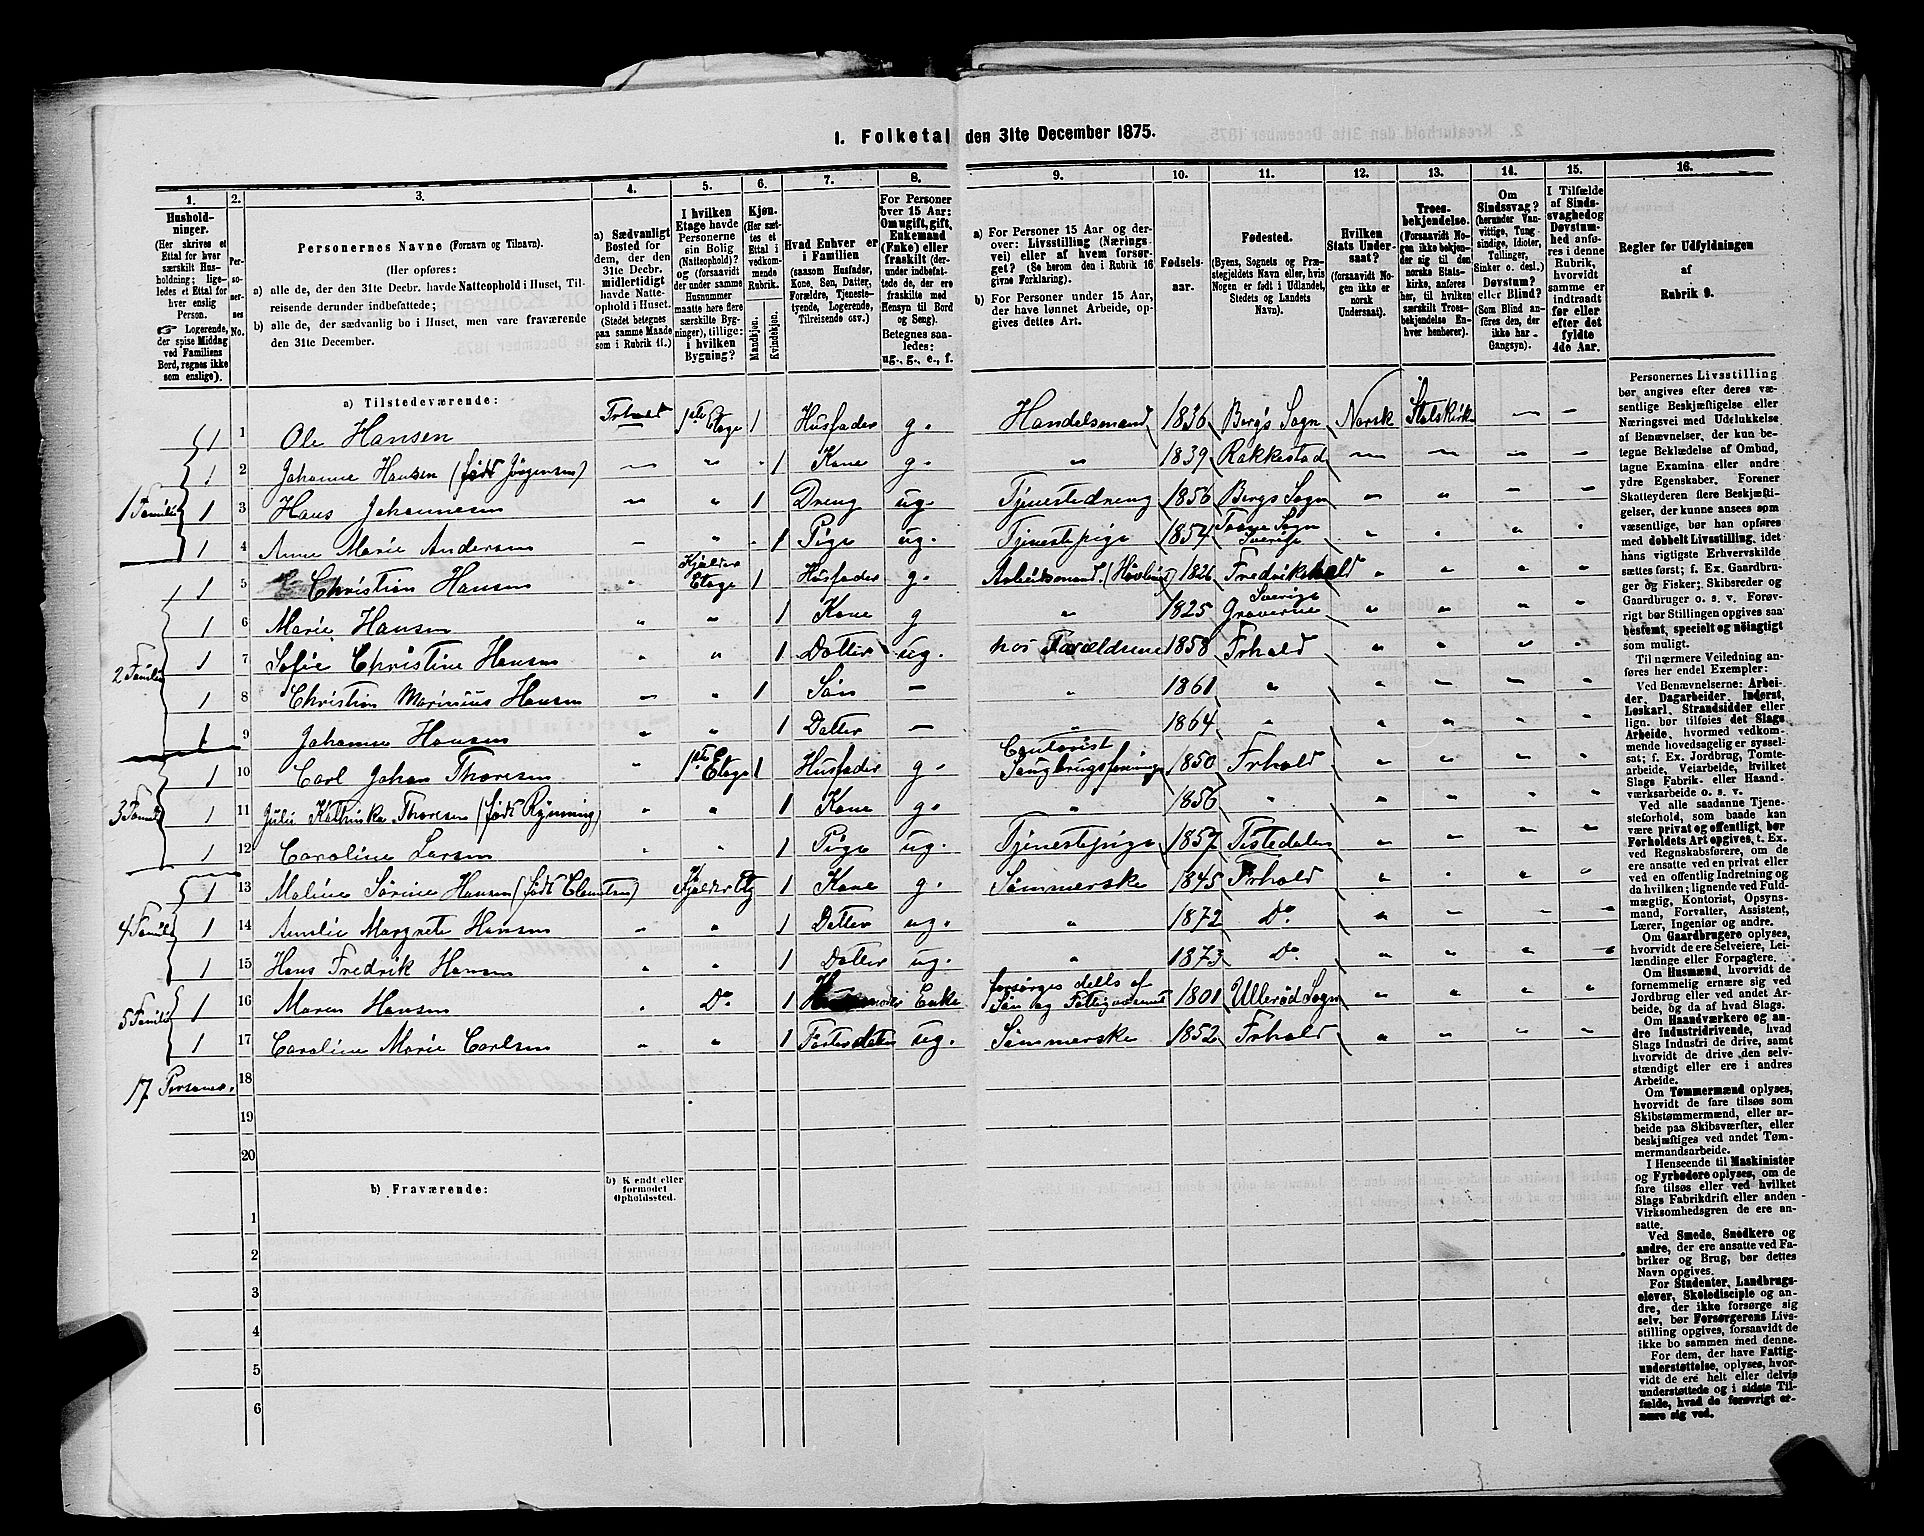 1. Folketal den 31te December 1875.
1. 2. 3. 4. 5. 6. 7. 8. 9. 10. 11. 12. 13. 14. 15. 16.
Hushold-
ninger.
(Her skrives et
Ettal for hver
særskilt Hus-
holdning; lige-
ledes et Ettal for
hver enslig
Person.
☞ Logerende,
der spise Middag
ved Familiens
Bord, regnes ikke
som enslige).
Per-
soner-
nes
No.
Personernes Navne (Fornavn og Tilnavn).
(Her opføres:
a) alle de, der den 31te Decbr. havde Natteophold i Huset, Til-
reisende derunder indbefattede;
b) alle de, der sædvanlig bo i Huset, men vare fraværende
den 31te December.
a) Sædvanligt
Bosted for
dem, der den
31te Decbr.
midlertidigt
havde Natte-
ophold i Huset.
(Stedet betegnes
paa samme Maade
som i Rubrik 11.)
I hvilken
Etage havde
Personerne
sin Bolig
(Natteophold)?
og (forsaavidt
der under samme
Husnummer
maatte høre flere
særskilte Byg-
ninger), tillige:
i hvilken
Bygning?
Kjøn.
(Her sæt-
tes et
Ettal i
vedkom-
mende
Rubrik.
Mandkjøn.
Kvindekjøn.
Hvad Enhver er
i Familien
(saasom Husfader,
Kone, Søn, Datter,
Forældre, Tjeneste-
tyende, Logerende,
Tilreisende osv.)
For Personer
over 15 Aar:
Om ugift, gift,
Enkemand
(Enke) eller
fraskilt (der-
under indbefat-
tede de, der ere
fraskilte med
Hensyn til Bord
og Seng).
Betegnes saa-
ledes:
ug., g., e., f.
a) For Personer 15 Aar og der-
over: Livsstilling (Nærings-
vei) eller af hvem forsør-
get? (Se herom den i Rubrik 16
givne Forklaring).
b) For Personer under 15 Aar,
der have lønnet Arbeide, op-
gives dettes Art.
Fødsels-
aar.
Fødested.
(Byens, Sognets og Præ-
stegjeldets Navn eller, hvis
Nogen er født i Udlandet,
Stedets og Landets
Navn).
Hvilken
Stats Under-
saat?
(forsaavidt No-
gen ikke er
norsk
Undersaat).
Troes-
bekjendelse.
(Forsaavidt No-
gen ikke bekjen-
der sig til den
norske Stats-
kirke, anføres
her, til hvilken
særskilt Troes-
bekjendelse En-
hver henhører).
Om
Sindssvag?
(herunder Van-
vittige, Tung-
sindige, Idioter,
Tullinger,
Sinker o. desl.)
Døvstum?
eller Blind?
(Som Blind an-
føres den, der
ikke har
Gangsyn).
I Tilfælde
af Sinds-
svaghed og
Døvstum-
hed anfø-
res i denne
Rubrik,
hvorvidt
samme er
indtraadt
før eller
efter det
fyldte
4de Aar.
Regler for Udfyldningen
af
Rubrik 9.
a) Tilstedeværende:
1 1 Ole Hansen Frhald 1ste Etage 1 Husfader g. Handelsmand 1836 Bergs Sogn Norsk Statskirk — —
1 2 Johanne Hansen (født Jörgensen) — " 1 Kone g. " 1839 Rakkestad — — — —
1 Familie 1 3 Hans Johannesen — " 1 Dreng ug. Tjenestedreng 1856 Bergs Sogn
1 4 Anne Marie Andersen — " 1 Pige ug. Tjenestepige 1854 Sogn Sverige
1 5 Christian Hansen " Kjælder Etage 1 Husfader g. Arbeidsmand 1826 Fredrikhald
1 6 Marie Hansen " " 1 Kone g " 1825 Sverige
2 Familie 1 7 Sofie Christine Hansen " " 1 Datter ug. hos Forældrene 1858 Frhald
1 8 Christian Marinius Hansen — " 1 Søn — " 1861 "
1 9 Johanne Hansen " " 1 Datter — " 1864 "
1 10 Carl Johan Thoresen 1ste Etage 1 Husfader g. Contorist 1850 Frhald
3 Familie 1 11 Julie Kathinka Thoresen (født Rynning) " " 1 Kone g. " 1856 "
1 12 Caroline Larsen " " 1 Pige ug. Tjenestepige 1857 Tistedalen
1 13 Maline Sørine Hansen (født) Kjælder Etg 1 Kone g. Sømmerske 1845 Frhald
4 Familie 1 14 Amelie Margrete Hansen " " 1 Datter ug. " 1872 Do.
1 15 Hans Fredrik Hansen " " 1 Datter ug. " 1873 Do.
5 Familie 1 16 Maren Hansen " Do 1 Enke forsørges dells af Søn og 1801 Ullerød Sogn
1 17 Caroline Marie Carlsen " " 1 ug. Sømmerske 1852 Frhald
17 Personer. 18
19
20
b) Fraværende:
b) Kjendt eller
formodet
Opholdssted.
1
2
3
4
5
6
Personernes Livsstilling
bør angives efter deres væ-
sentlige Beskjæftigelse eller
Næringsvei med Udelukkelse
af Benævnelser, der kun be-
tegne Beklædelse af Ombud,
tagne Examina eller andre
ydre Egenskaber. Forener
Skatteyderen flere Beskjæfti-
gelser, der kunne ansees som
væsentlige, bør han opføres
med dobbelt Livsstilling, idet
hans vigtigste Erhvervskilde
sættes først; f. Ex. Gaardbru-
ger og Fisker; Skibsreder og
Gaardbruger o. s. v. Forøv-
rigt bør Stillingen opgives saa
bestemt, specielt og nøiagtigt
som muligt.
Til nærmere Veiledning an-
føres her endel Exempler:
Ved Benævnelserne: Arbei-
der, Dagarbeider, Inderst,
Løskarl, Strandsidder eller
lign. bør tilføies det Slags
Arbeide, hvormed vedkom-
mende hovedsagelig er syssel-
sat; f. Ex. Jordbrug, Tomte-
arbeide, Veiarbeide, hvilket
Slags Fabrik- eller Haand-
værksarbeide o. s. v.
Ved alle saadanne Tjene-
steforhold, som baade kan
være privat og offentligt, bør
Forholdets Art opgives, t. Ex.
ved Regnskabsførere, om de
ere ansatte ved en privat eller
ved en offentlig Indretning og
da hvilken; lignende ved Fuld-
mægtig, Kontorist, Opsyns-
mand, Forvalter, Assistent,
Lærer, Ingeniør og andre.
Om Gaardbrugere oplyses,
hvorvidt de ere Selveiere, Lei-
lændinge eller Forpagtere.
Om Husmænd, hvorvidt de
fornemmelig ernære sig ved
Jordbrug eller ved andet Ar-
beide, og da af hvad Slags.
Om Haandværkere og an-
dre Industridrivende, hvad
Slags Industri de drive, samt
hvorvidt de drive den selv-
stændigt eller ere i andres
Arbeide.
Om Tømmermænd oplyses,
hvorvidt de fare tilsøs som
Skibstømmermænd, eller ar-
beide paa Skibsværfter, eller
beskjæftiges ved andet Tøm-
mermandsarbeide.
I Henseende til Maskinister
og Fyrbødere oplyses, om de
fare tilsøs eller ved hvilket
Slags Fabrikdrift eller anden
Virksomhedsgren de ere an-
satte.
Ved Smede, Snedkere og
andre, der ere ansatte ved Fa-
briker og Brug, bør dettes
Navn opgives.
For Studenter, Landbrugs-
elever, Skoledisciple og an-
dre, der ikke forsørge sig
selv, bør Forsørgerens Livs-
stilling opgives, forsaavidt de
ikke bo sammen med denne.
For dem, der have Fattig-
understøttelse, oplyses, hvor-
vidt de ere helt eller delvis
understøttede og i sidste Til-
fælde, hvad de forøvrigt er-
nære sig ved.